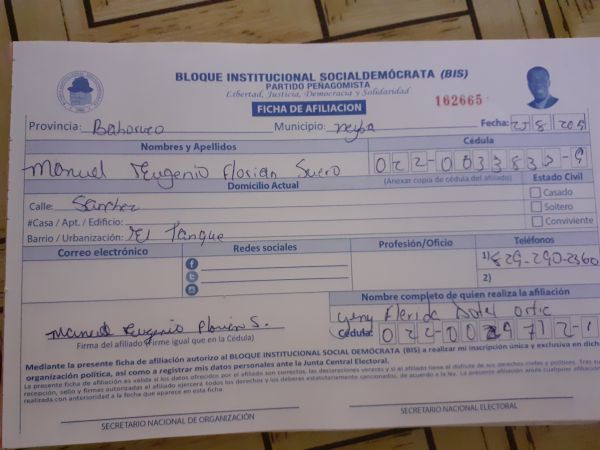 BLOQUE INSTITUCIONAL SOCIALDEMÓCRATA (BIS)
PARTIDO PENAGOMISTA
Libertad, Justicia, Democracia y Solidaridad
FICHA DE AFILIACION
162665
Provincia: Bahoruco Municipio: neyba Fecha:
Nombres y Apellidos Cédula
Manuel Eugenio Florian Suero
(Anexar copia de cédula del afiliado)
Domicilio Actual Estado Civil
Calle: Sanchez
Casado
#Casa / Apt. / Edificio:
Soltero
Barrio / Urbanización: El Tanque
Conviviente
Correo electrónico Redes sociales Profesión/Oficio Teléfonos
1) 829-290-2360
2)
Nombre completo de quien realiza la afiliación
Florida
Manuel Eugenio Florian S.
Firma del afiliado (Firme igual que en la Cédula)
Cédula:
Mediante la presente ficha de afiliación autorizo al BLOQUE INSTITUCIONAL SOCIAL DEMÓCRATA (BIS) a realizar mi inscripción única y exclusiva en dicha
organización política, así como a registrar mis datos personales ante la Junta Central Electoral.
La presente ficha de afiliación es válida si los datos ofrecidos por el afiliado son correctos, las declaraciones veraces y si el afiliado tiene el disfrute de sus derechos civiles y políticos.
recepción, sello y firmas autorizadas al afiliado ejercerá todos los derechos y los deberes estatutariamente consignados, de acuerdo a la ley. La presente afiliación anula cualquier afiliación
realizada con anterioridad a la fecha que aparece en esta ficha.
SECRETARIO NACIONAL DE ORGANIZACIÓN SECRETARIO NACIONAL ELECTORAL